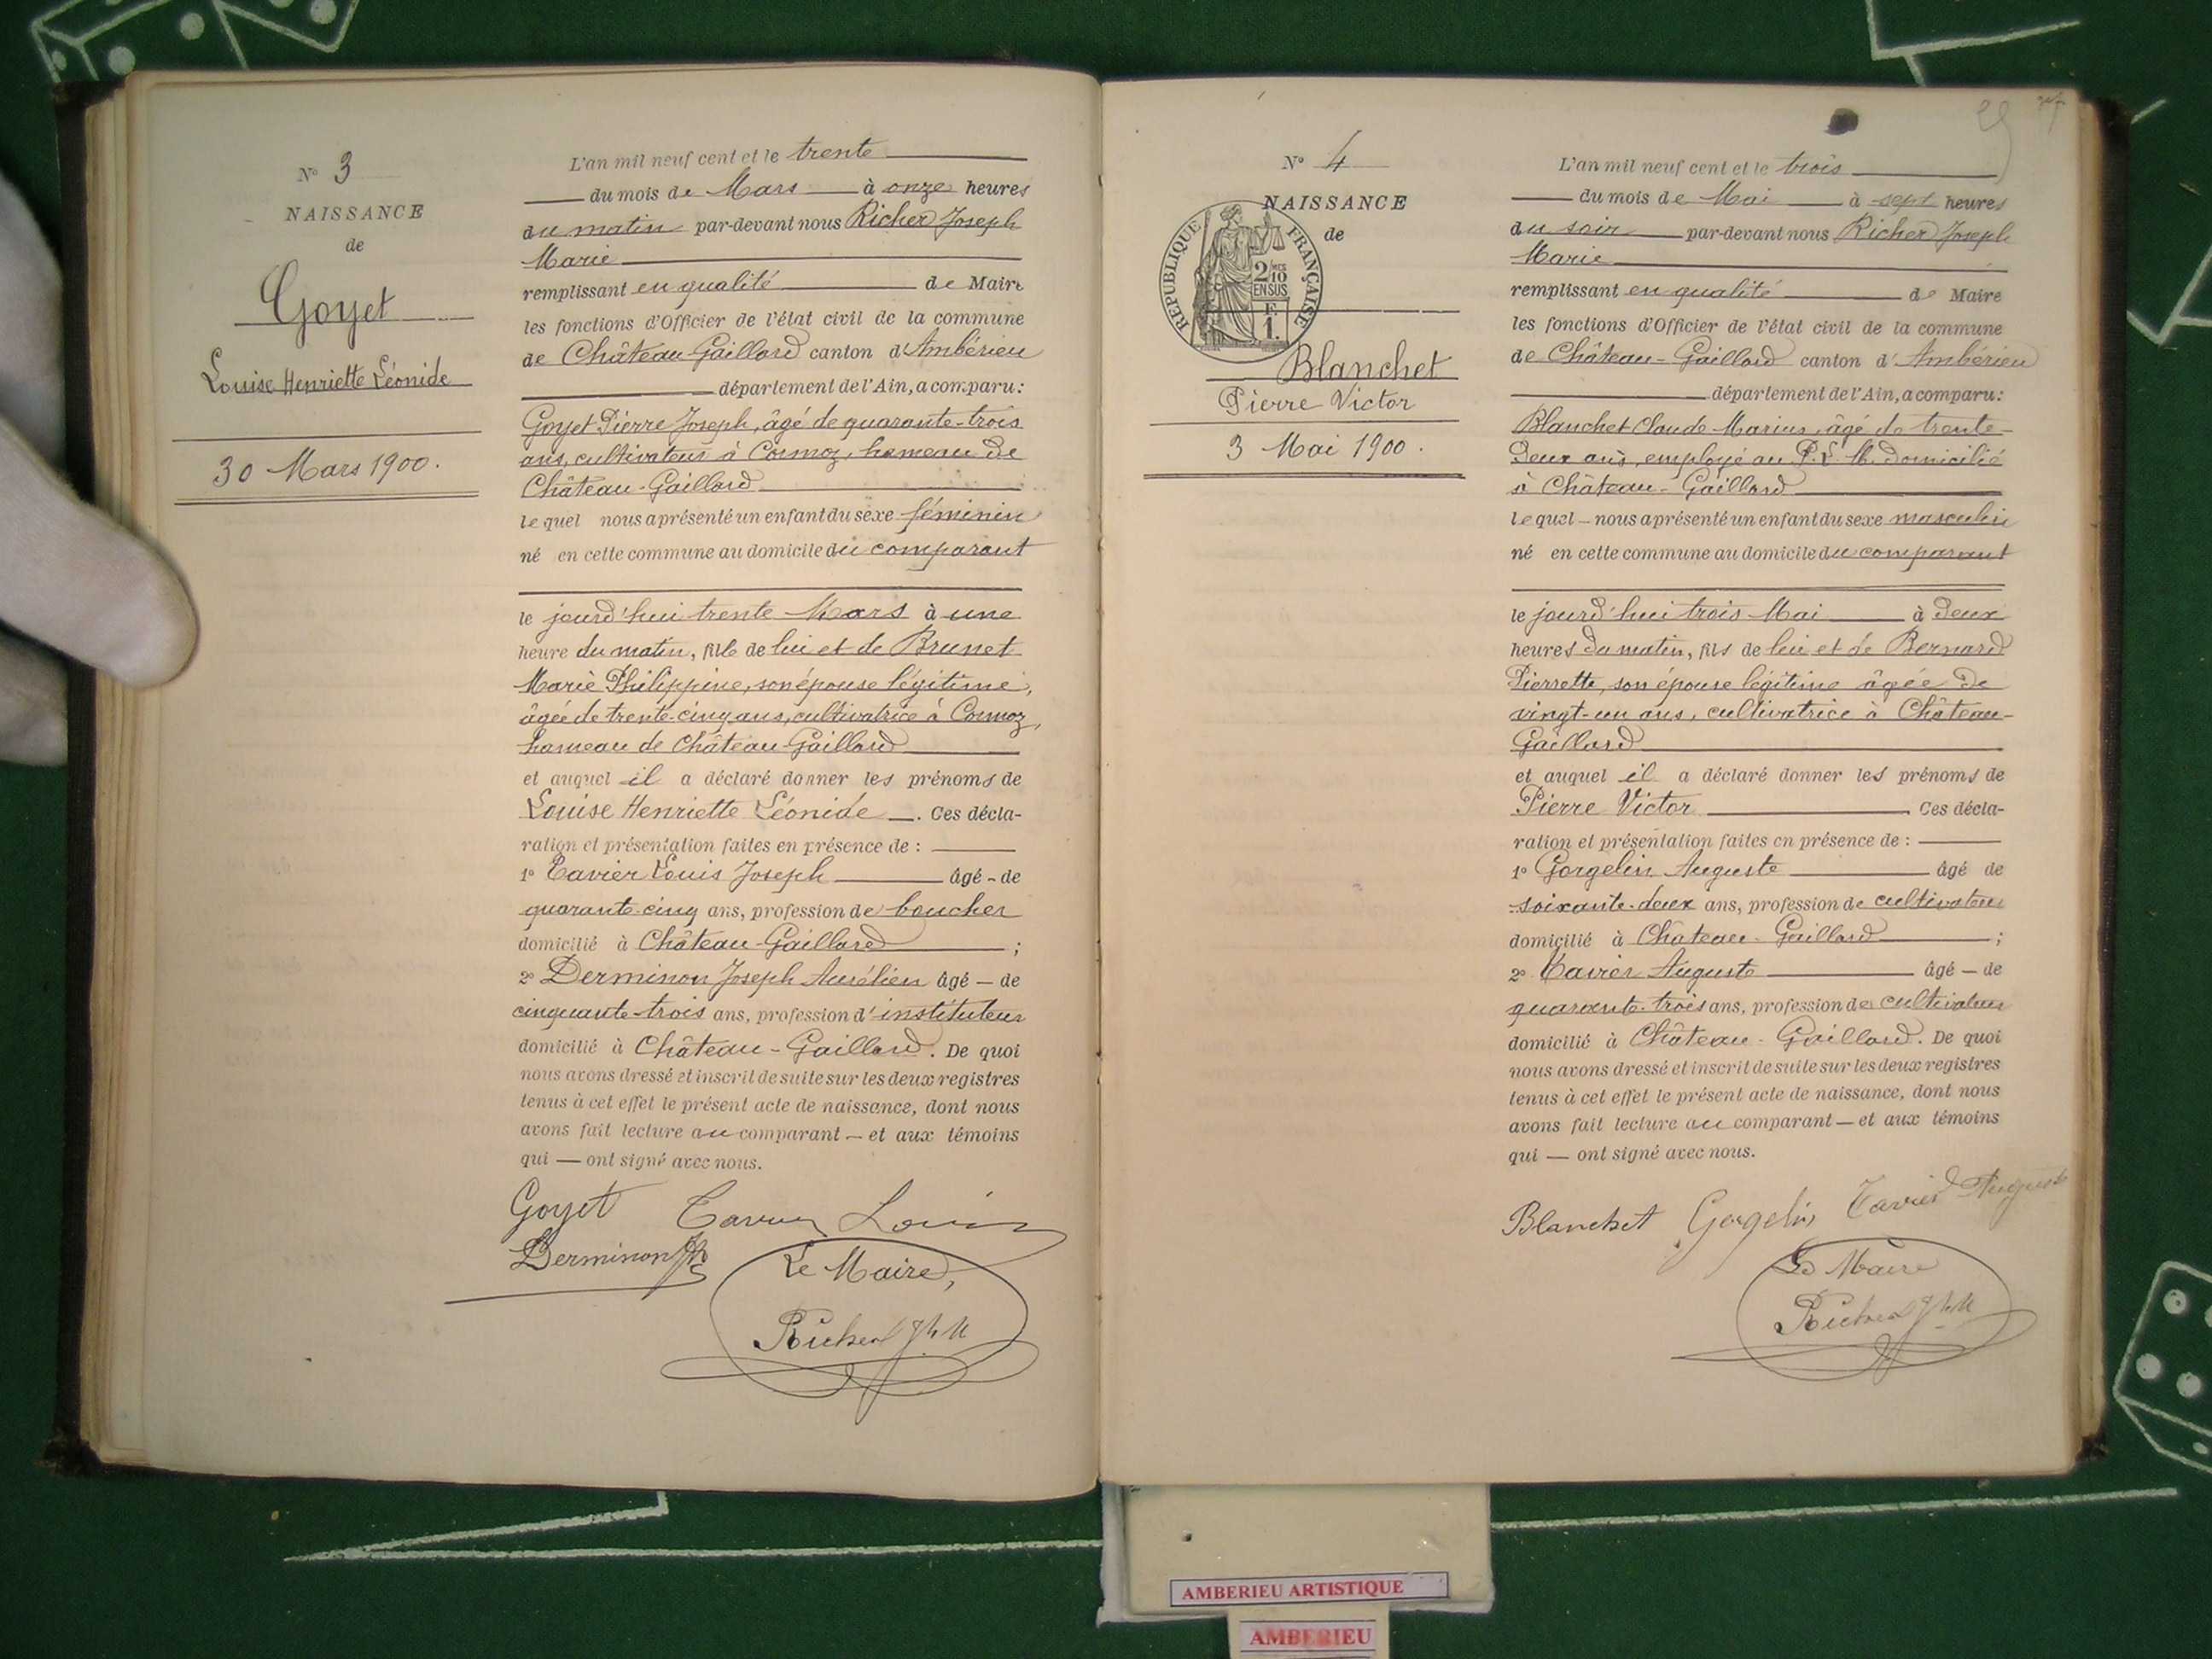 N° 3
NAISSANCE
de
Goyet
Louise Henriette Léonide
30 Mars 1900.
L'an mil neuf cent et le trente
du mois de Mars à onze heures
du matin par-devant nous Richer Joseph
Marie
remplissant en qualité de Maire
les fonctions d'Officier de l'état civil de la commune
de Château-Gaillard canton d'Ambérieu
département de l'Ain, a comparu:
Goyet Pierre Joseph, âgé de quarante-trois
ans, cultivateur à Cormoz, hameau de
Château-Gaillard
le quel nous a présenté un enfant du sexe féminin
né en cette commune au domicile du comparant
le jourd'hui trente Mars à une
heure du matin, fille de lui et de Brunet
Marie Philippine, son épouse légitime,
âgée de trente-cinq ans, cultivatrice à Cormoz,
hameau de Château-Gaillard
et auquel il a déclaré donner les prénoms de
Louise Henriette Léonide. Ces décla-
ration et présentation faites en présence de :
1° Tavier Louis Joseph âgé - de
quarante-cinq ans, profession de boucher
domicilié à Château-Gaillard ;
2° Derminon Joseph Aurélien âgé — de
cinquante-trois ans, profession d'instituteur
domicilié à Château-Gaillard. De quoi
nous avons dressé et inscrit de suite sur les deux registres
tenus à cet effet le présent acte de naissance, dont nous
avons fait lecture au comparant — et aux témoins
qui — ont signé avec nous.
Goyet Tavier Louis
Derminon Jh
Le Maire,
Richer Jh M
29
N° 4
NAISSANCE
de
RÉPUBLIQUE FRANÇAISE
2/10
EN SUS
F
1.
Blanchet
Pierre Victor
3 Mai 1900.
L'an mil neuf cent et le trois
du mois de Mai à sept heures
du soir par-devant nous Richer Joseph
Marie
remplissant en qualité de Maire
les fonctions d'Officier de l'état civil de la commune
de Château-Gaillard canton d'Ambérieu
département de l'Ain, a comparu:
Blanchet Claude Marius, âgé de trente-
deux ans, employé au P. L. M. domicilié
à Château-Gaillard
le quel — nous a présenté un enfant du sexe masculin
né en cette commune au domicile du comparant
le jourd'hui trois Mai à deux
heures du matin, fils de lui et de Bernard
Pierrette, son épouse légitime âgée de
vingt-un ans, cultivatrice à Château-
Gaillard
et auquel il a déclaré donner les prénoms de
Pierre Victor Ces décla-
ration et présentation faites en présence de :
1° Gorgelin Auguste âgé de
soixante-deux ans, profession de cultivateur
domicilié à Château-Gaillard ;
2° Tavier Auguste âgé — de
quarante-trois ans, profession de cultivateur
domicilié à Château-Gaillard. De quoi
nous avons dressé et inscrit de suite sur les deux registres
tenus à cet effet le présent acte de naissance, dont nous
avons fait lecture au comparant — et aux témoins
qui — ont signé avec nous.
Blanchet Gorgelin Tavier Auguste
Le Maire
Richer Jh M
AMBERIEU ARTISTIQUE
AMBERIEU